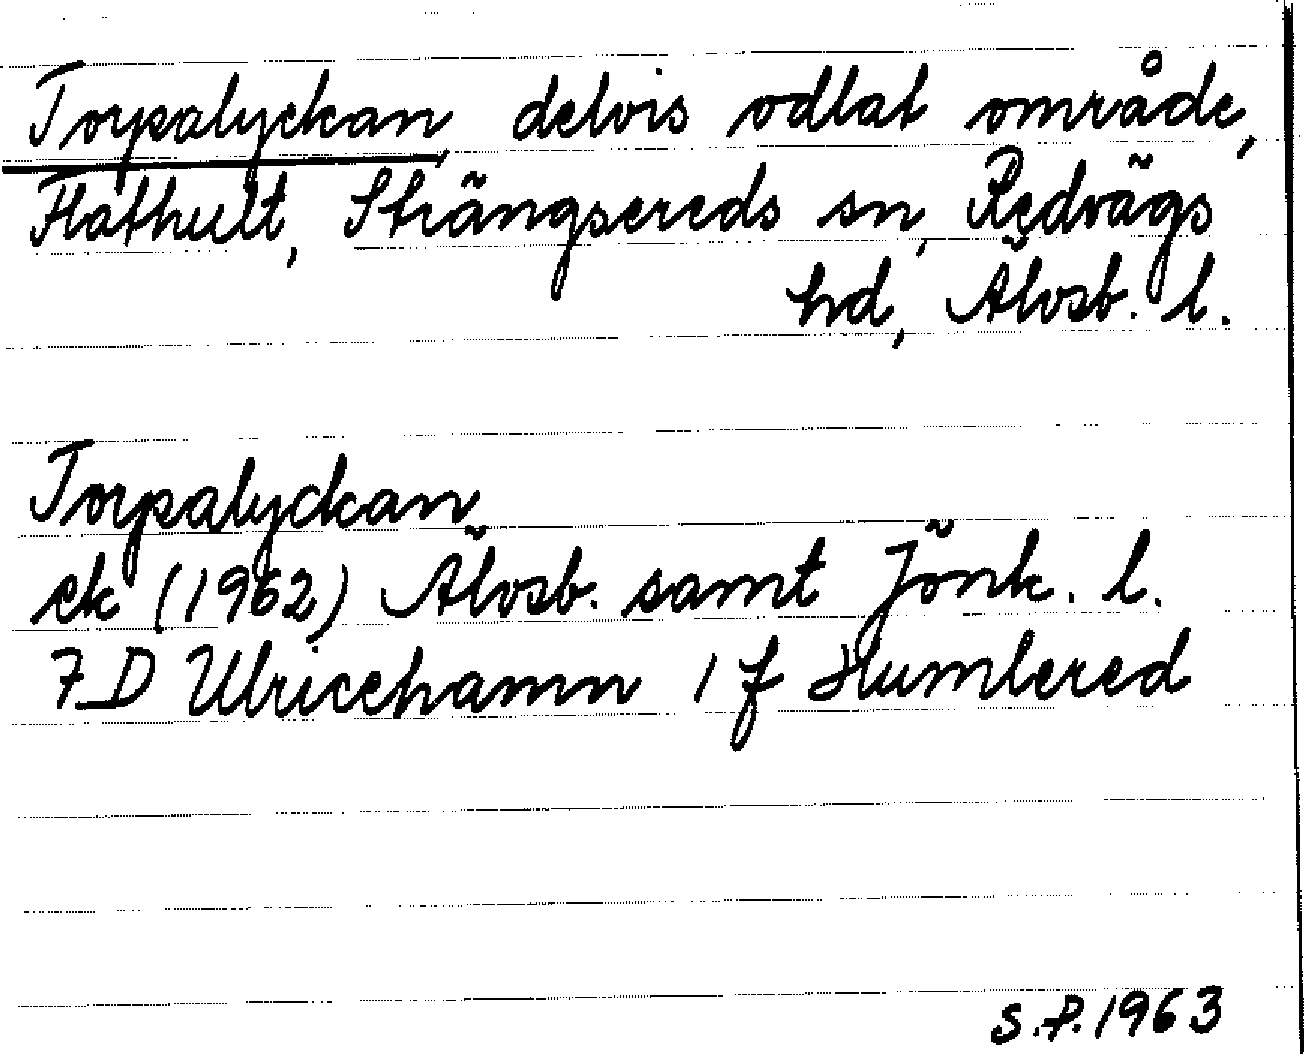 Torpalyckan, delvis odlat område,
Flathult, Strängsereds sn, Redvägs
hd, Älvsb. l.
Torpalyckan
ek (1962) Älvsb. samt Jönk. l.
7 D Ulricehamn 1 f Humlered
S.P. 1963